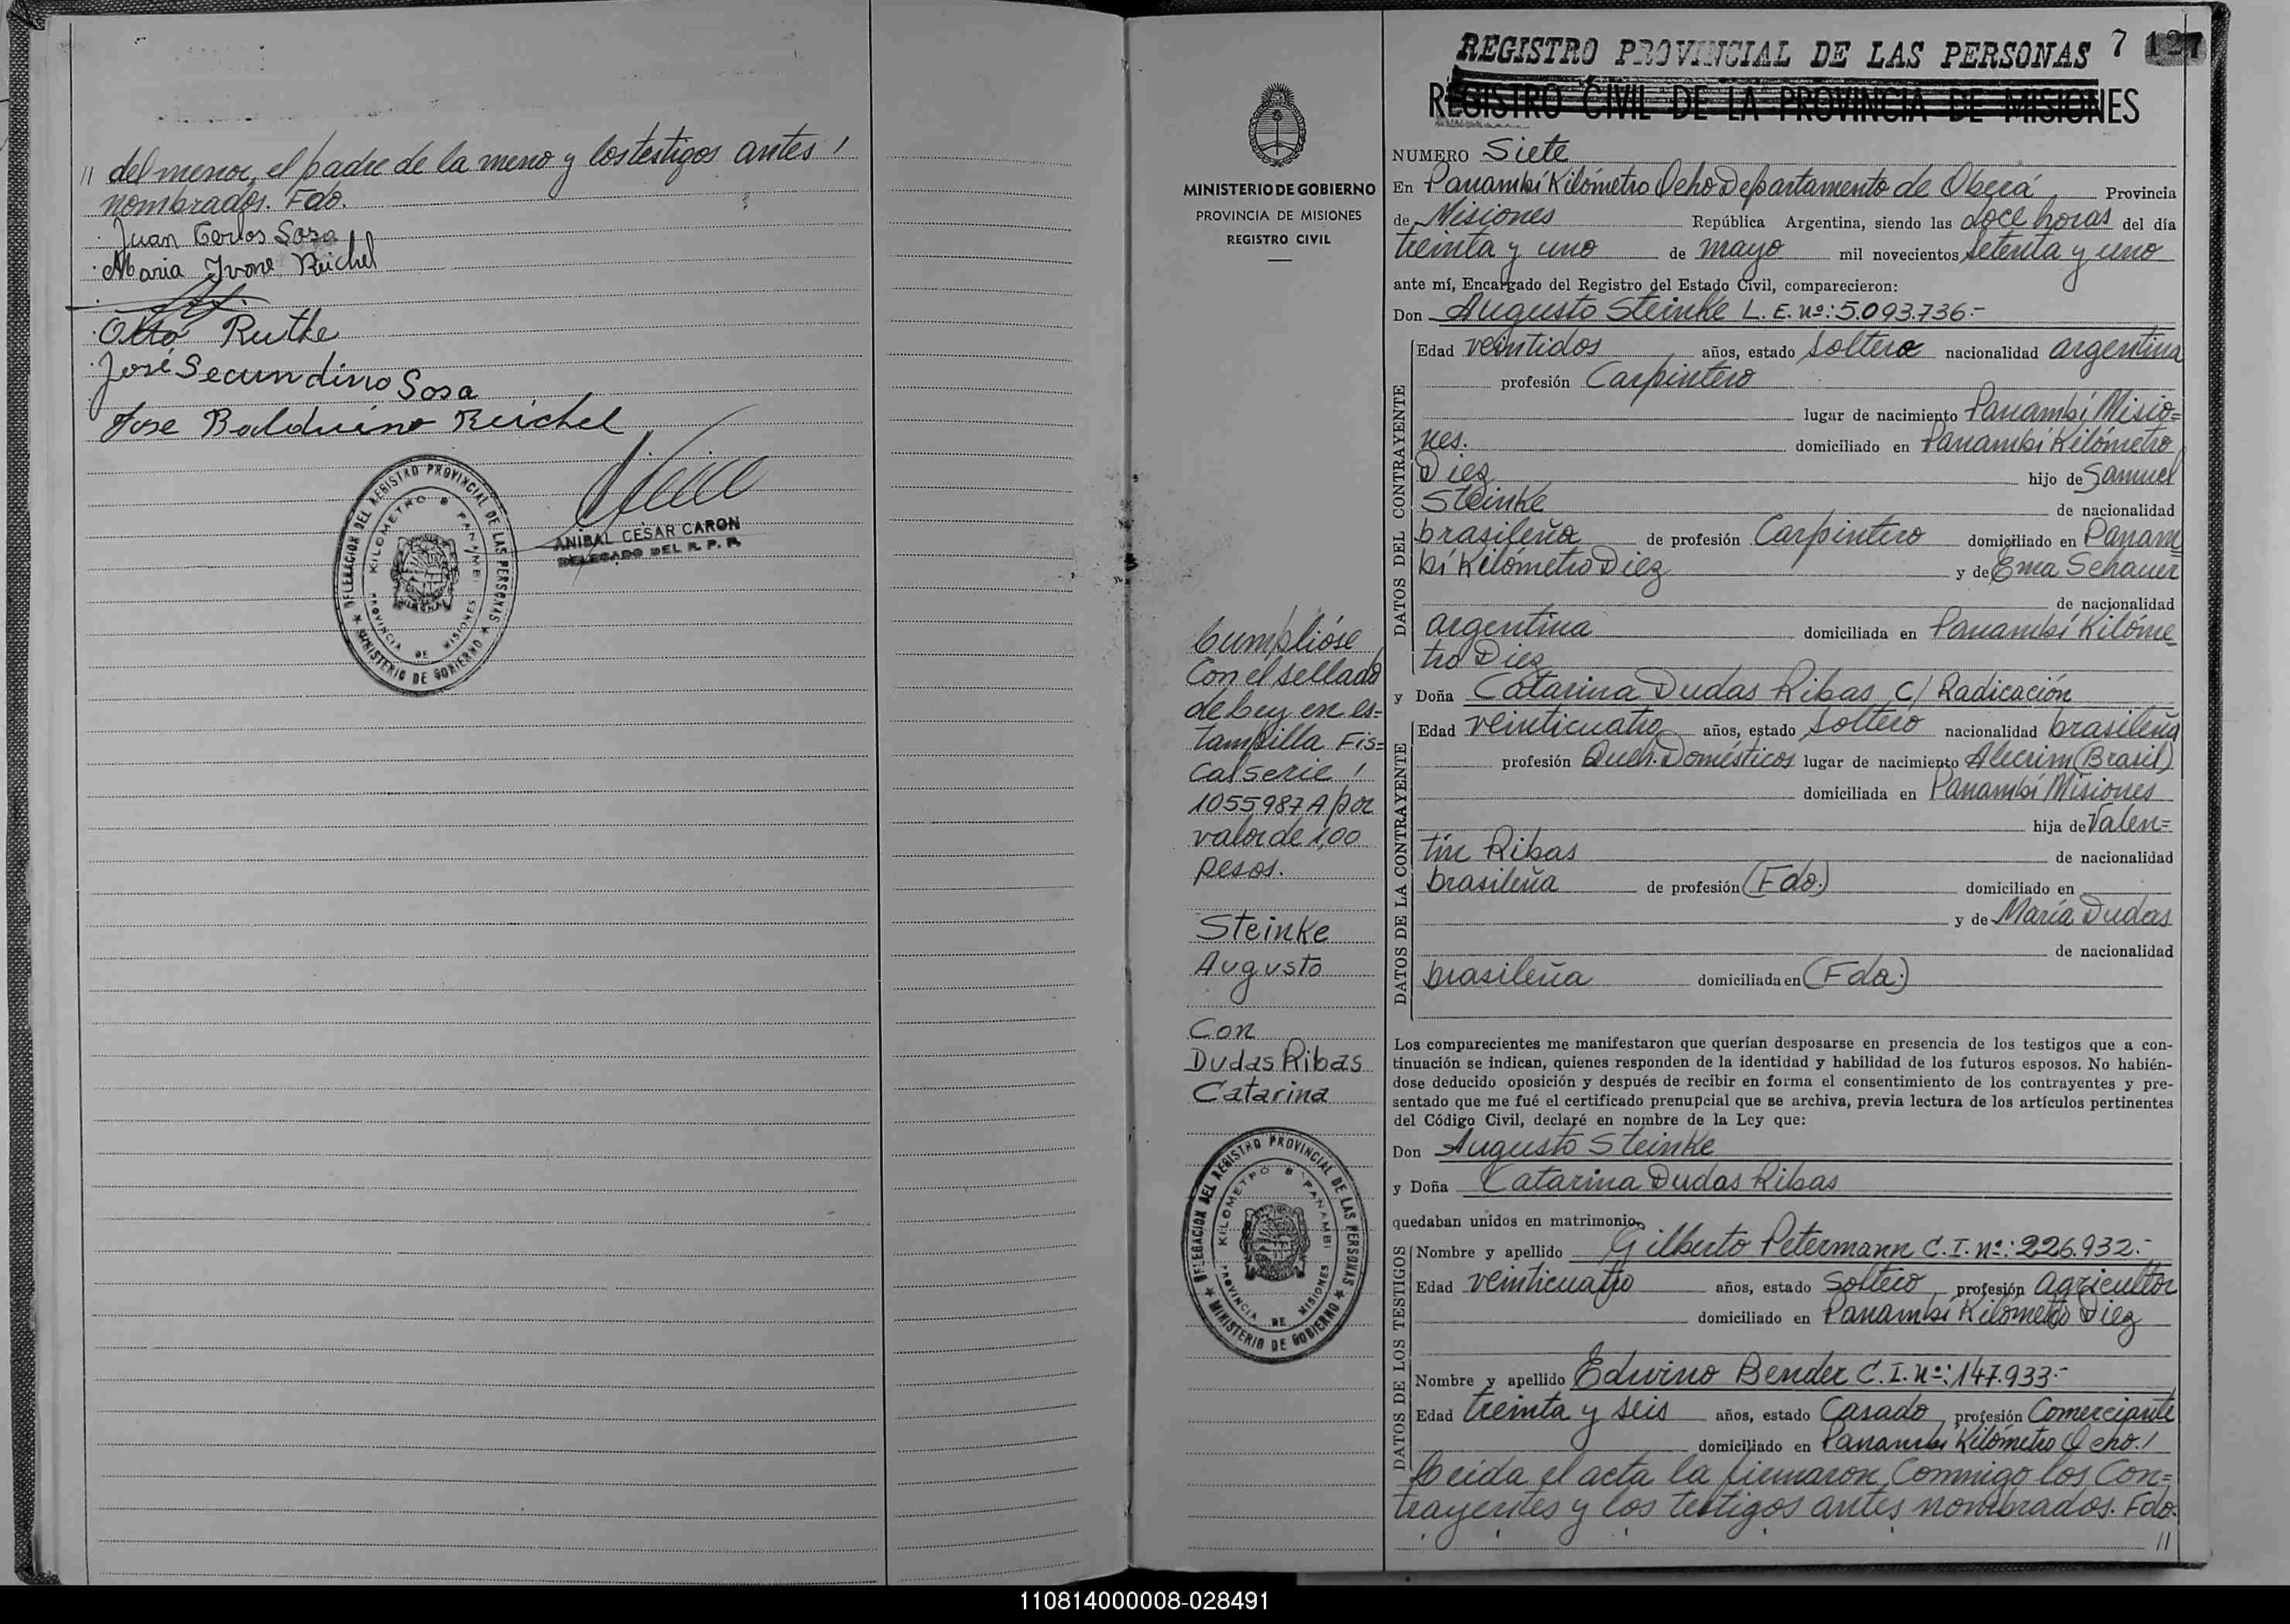 // del menor, el padre de la meno y los testigos antes /
nombrados. Fdo.
Juan Carlos Sosa
Maria Ivone Reichel
Otto Ruthe
José Secundino Sosa
Jose Balduino Reichel
DELEGACION DEL REGISTRO PROVINCIAL DE LAS PERSONAS
KILOMETRO 8 PANAMBI
PROVINCIA DE MISIONES
★ MINISTERIO DE GOBIERNO ★
ANIBAL CÉSAR CARON
DELEGADO DEL R. P. P.
MINISTERIO DE GOBIERNO
PROVINCIA DE MISIONES
REGISTRO CIVIL
Cumplióse
Con el sellado
de ley en es=
tampilla Fis=
cal serie /
1055987 A por
valor de 1,00
pesos.
Steinke
Augusto
Con
Dudas Ribas
Catarina
DELEGACION DEL REGISTRO PROVINCIAL DE LAS PERSONAS
KILOMETRO 8 PANAMBI
PROVINCIA DE MISIONES
★ MINISTERIO DE GOBIERNO ★
REGISTRO PROVINCIAL DE LAS PERSONAS 7 127
REGISTRO CIVIL DE LA PROVINCIA DE MISIONES
NUMERO Siete
En Panambí Kilómetro Ocho Departamento de Oberá Provincia
de Misiones República Argentina, siendo las doce horas del día
treinta y uno de mayo mil novecientos setenta y uno
ante mí, Encargado del Registro del Estado Civil, comparecieron:
Don Augusto Steinke L. E. nº: 5.093.736.-
DATOS DEL CONTRAYENTE
Edad veintidos años, estado soltero nacionalidad argentina
profesión Carpintero
lugar de nacimiento Panambí Misio=
nes. domiciliado en Panambí Kilómetro
Diez hijo de Samuel
Steinke de nacionalidad
brasileña de profesión Carpintero domiciliado en Panam=
bí Kilómetro Diez y de Ema Schauer
de nacionalidad
argentina domiciliada en Panambí Kilóme=
tro Diez
y Doña Catarina Dudas Ribas C/ Radicación
DATOS DE LA CONTRAYENTE
Edad veinticuatro años, estado soltero nacionalidad brasileña
profesión Queh. Domésticos lugar de nacimiento Alecrim (Brasil)
domiciliada en Panambí Misiones
hija de Valen=
tín Ribas de nacionalidad
brasileña de profesión (Fdo.) domiciliado en
y de María Dudas
de nacionalidad
brasileña domiciliada en (Fda.)
Los comparecientes me manifestaron que querían desposarse en presencia de los testigos que a con-
tinuación se indican, quienes responden de la identidad y habilidad de los futuros esposos. No habién-
dose deducido oposición y después de recibir en forma el consentimiento de los contrayentes y pre-
sentado que me fué el certificado prenupcial que se archiva, previa lectura de los artículos pertinentes
del Código Civil, declaré en nombre de la Ley que:
Don Augusto Steinke
y Doña Catarina Dudas Ribas
quedaban unidos en matrimonio.
DATOS DE LOS TESTIGOS
Nombre y apellido Gilberto Petermann C. I. nº: 226.932.-
Edad veinticuatro años, estado soltero profesión agricultor
domiciliado en Panambí Kilómetro Diez
Nombre y apellido Edwino Bender C. I. nº: 147.933.-
Edad treinta y seis años, estado Casado profesión Comerciante
domiciliado en Panambí Kilómetro Ocho. /
Leída el acta la firmaron Conmigo los Con=
trayentes y los testigos antes nombrados. Fdo.
//
110814000008-028491